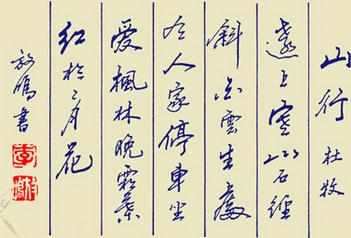 山行 杜牧
遠上寒山石徑
斜白雲生處
有人家停車坐
愛楓林晚霜葉
紅於二月花
書